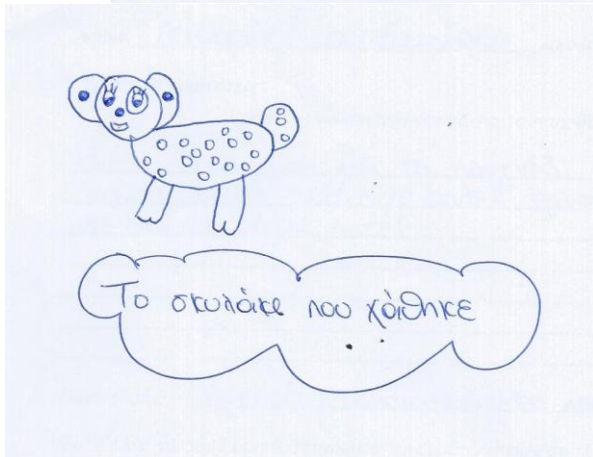 Το σκυλάκι που χάθηκε